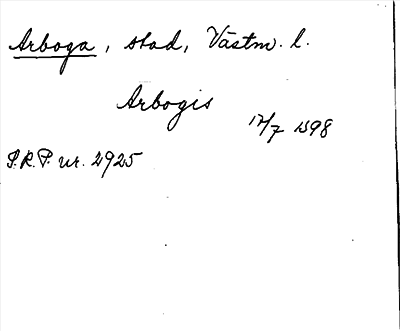 Arboga, stad, Västm. l.
Arbogis
17/7 1598
S.R.P. nr. 2925